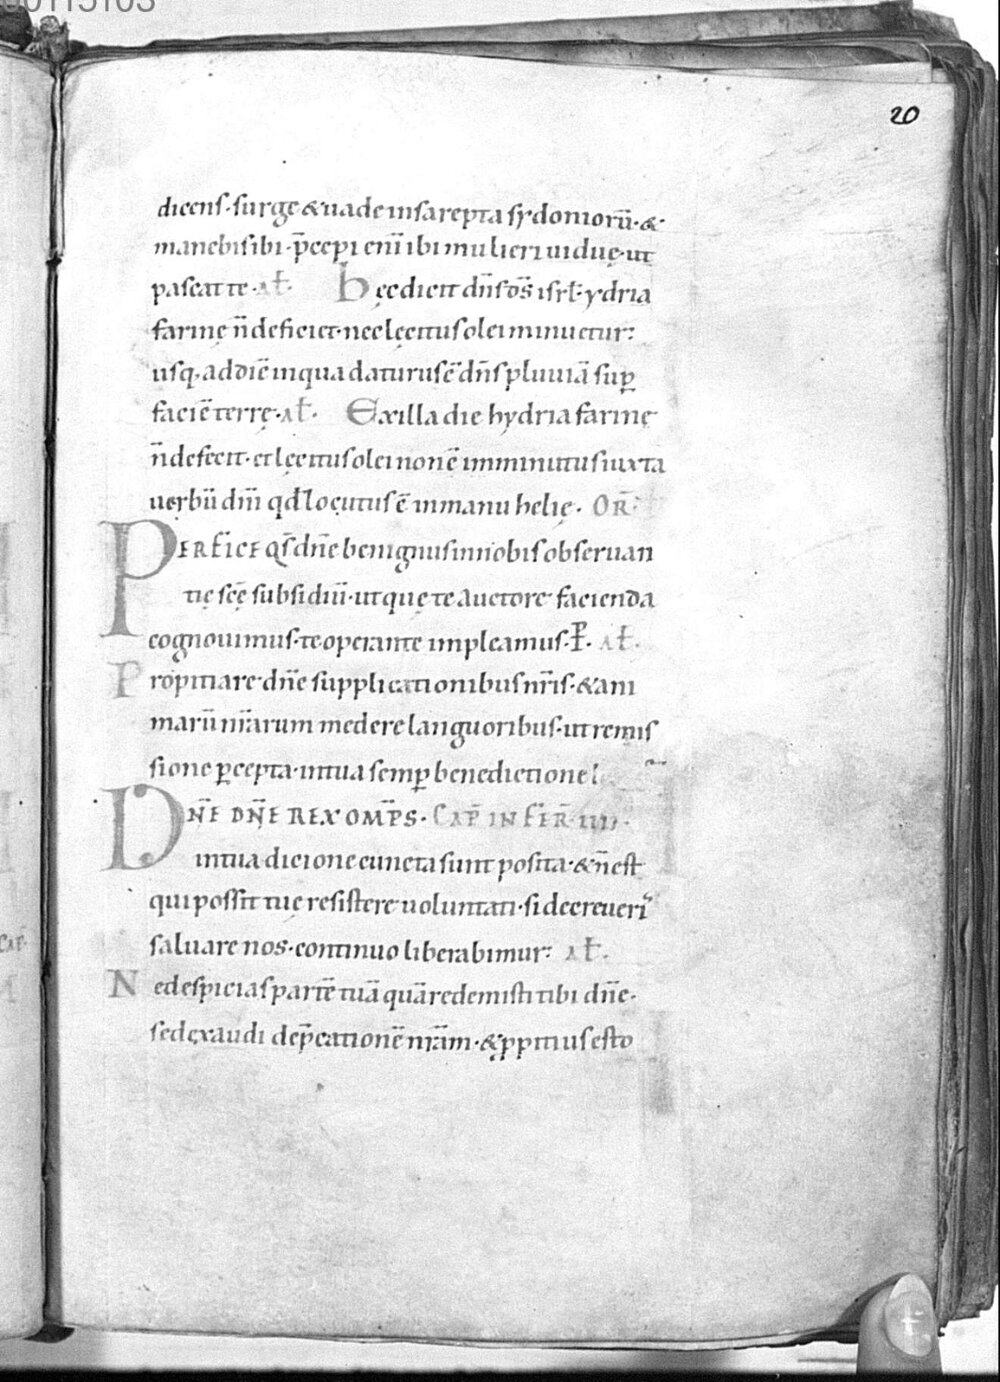 00115103
20
dicens·surge &uade insarepta sydonioru̅·&
manebis ibi·p̅cepi eni̅ ibi mulieri uiduę·ut
pascat te·al̅· hęc dicit dn̅s d̅s isrl̅·ydria
farinę n̅ deficiet·nec lęcitus olei minuetur:
usq· ad die̅ inqua daturus e̅ dn̅s pluuia̅ sup̲
facie̅ terrę·al̅· Exilla die hydria farinę
n̅ defecit·et lęcitus olei non e̅ imminutus iuxta
uerbu̅ dn̅i qd̅ locutus e̅ inmanu helię· OR̅·
PERFICE Qs̅ dn̅e benignus innobis obseruan
tię scę̅ subsidiu̅·ut quę te auctore facienda
cognouimus·te operante impleamus·P̲· al̅·
Propitiare dn̅e supplicationibus nr̅is·& ani
maru̅ nr̅arum medere languoribus·ut remis
sione p̲cepta·intua semp̲ benedictione l
DN̅E DN̅E REX OMP̅S· CAP̅ IN FER̅ IIII·
intua dicione cuncta sunt posita·& n̅ est
qui possit tuę resistere uoluntati·si decreueri
saluare nos·continuo liberabimur: al̅·
Ne despicias parte̅ tua̅ qua̅ redemisti tibi dn̅e·
sed ęxaudi dep̅catione̅ nr̅am·& ppitius esto
CAP̅·